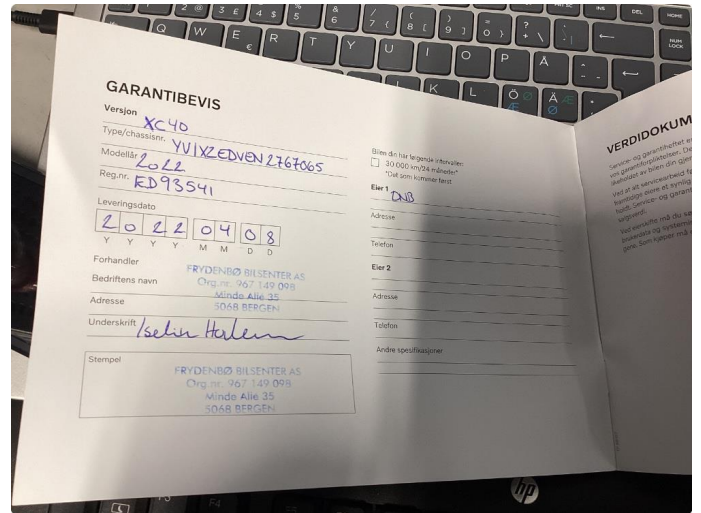 GARANTIBEVIS
Versjon XC40
Type/chassisnr. YV1XZEDVEN2767065
Modellår 2022
Reg.nr. ED93541
Leveringsdato
2022 04 08
Y Y Y Y M M D D
Forhandler
FRYDENBØ BILSENTER AS
Bedriftens navn Org.nr. 967 149 098
Minde Alle 35
Adresse 5068 BERGEN
Underskrift Iselin
Stempel
FRYDENBØ BILSENTER AS
Org.nr. 967 149 098
Minde Alle 35
5068 BERGEN
Bilen din har følgende intervaller:
30 000 km/24 måneder*
*Det som kommer først
Eier 1 DNB
Adresse
Telefon
Eier 2
Adresse
Telefon
Andre spesifikasjoner
VERDIDOKUM
Service- og garantiheftet
hp